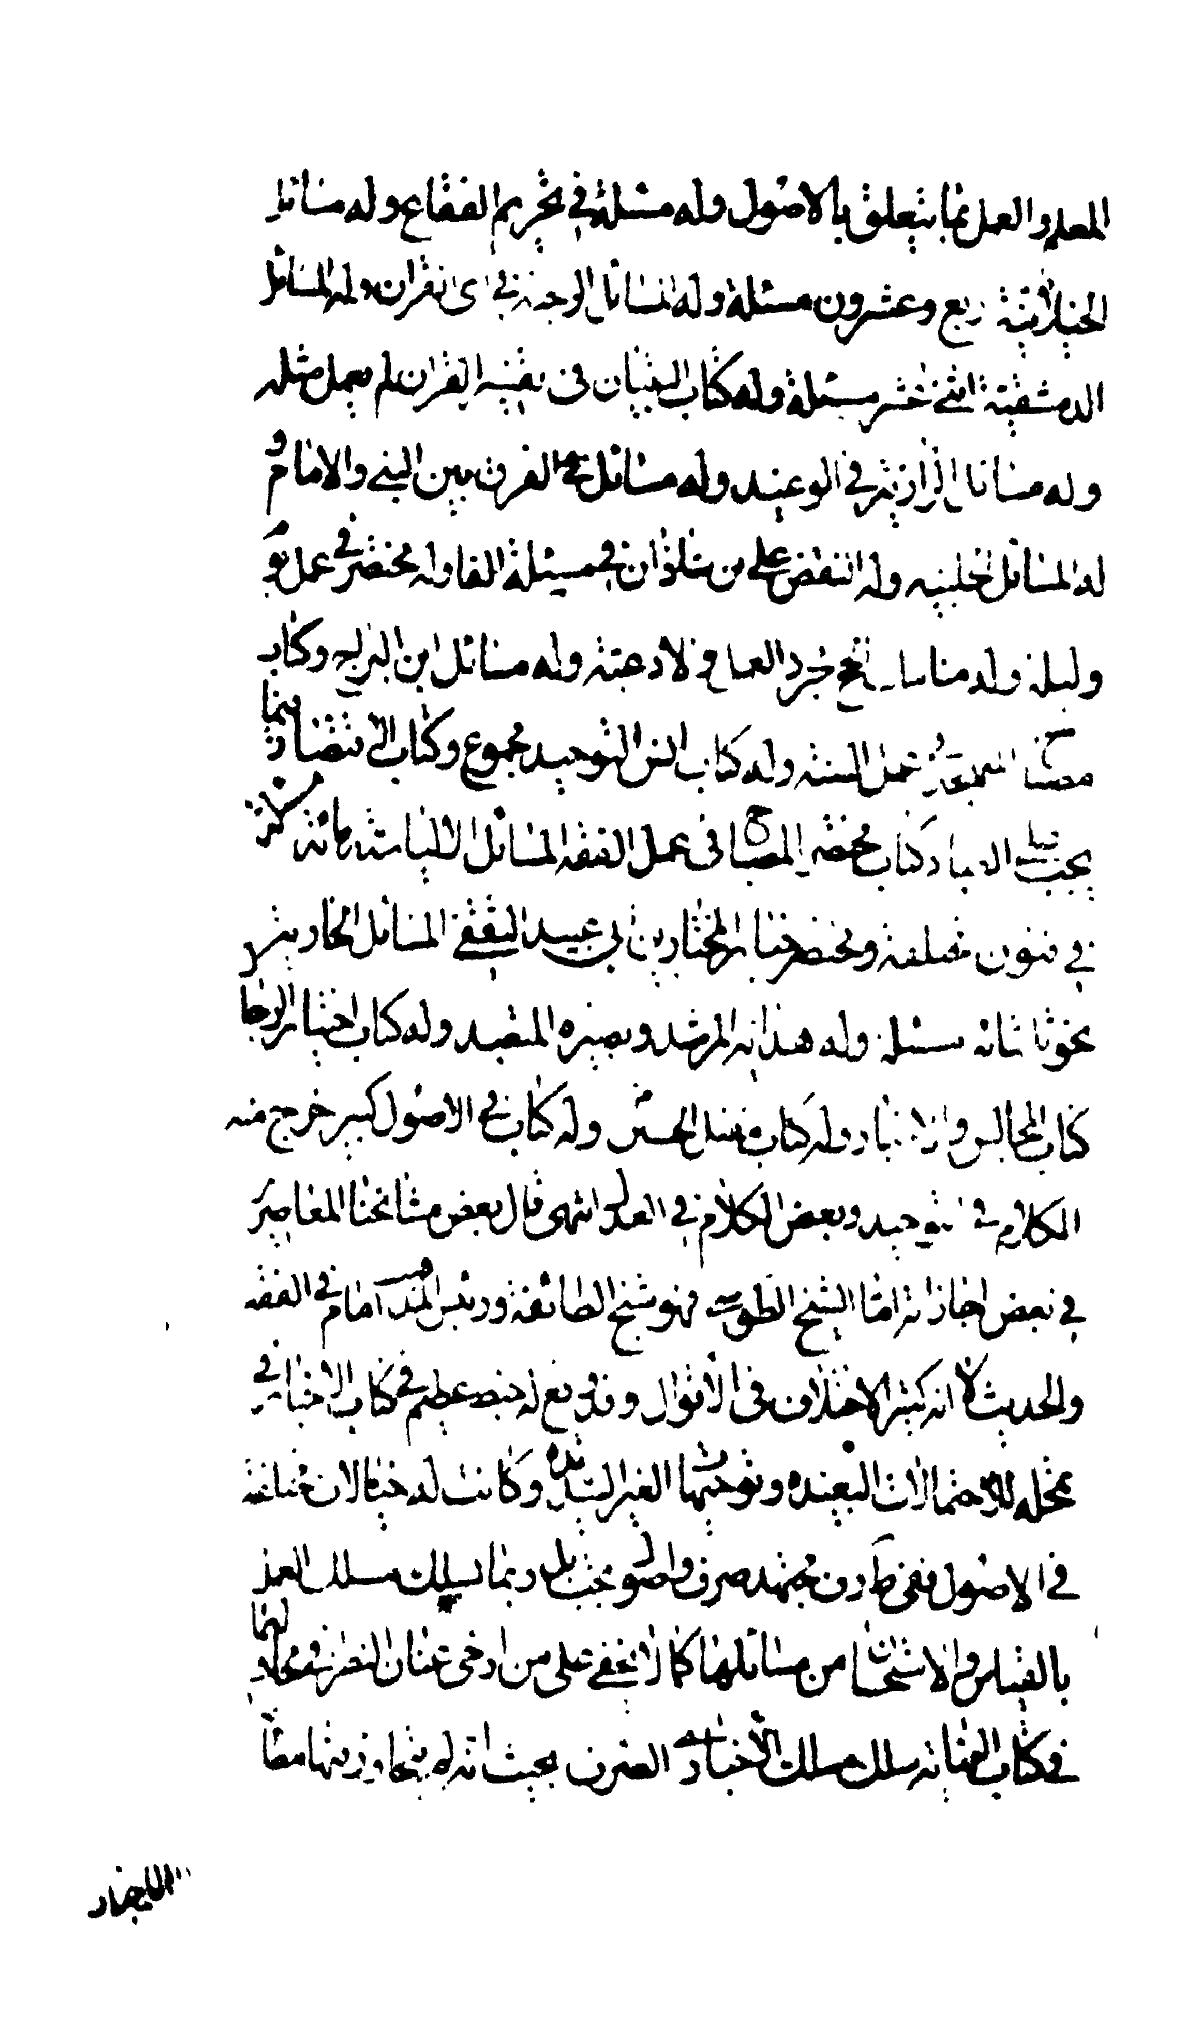 العلم والعمل بما يتعلق بالاصول وله مسئلة في تحريم الفقاع وله مسائل
الجنبلائية ربع وعشرون مسئلة وله المسائل الرجبية في اى القران وله المسائل
الدمشقية اثنى عشر مسئلة وله كتاب التبيان في تفسير القران لم يعمل مثله
وله مسائل الرازية في الوعيد وله مسائل في الفرق بين النبي والامام و
له المسائل الحلبية وله النقض على بن شاذان في مسئلة الغار وله مختصر في عمل يوم
وليلة وله مناسك الحج مجرد العمل والادعية وله مسائل ابن البراج وكتاب
عمل السنة وله كتاب انس التوحيد مجموع وكتاب الاقتصاد فيما
يجب على العباد كتاب مختصر المصباح في عمل الفقه المسائل الالياسية مائة مسئلة
في فنون مختلفة ومختصر اخبار المختار بن ابي عبيد الثقفي المسائل الحائرية
نحو ثلثمائة مسئلة وله هداية المرشد وبصيرة المتعبد وله كتاب اختيار الرجال
كتاب المجالس والاخبار وله كتاب مقتل الحسين وله كتاب في الاصول كبير خرج منه
الكلام في التوحيد وبعض الكلام في العدل انتهى قال بعض مشائخنا المعاصر
في بعض اجازاته اما الشيخ الطوسي فهو شيخ الطائفة ورئيس المذهب امام في الفقه
والحديث الا انه كثير الاختلاف في الاقوال وقد وقع له خبط عظيم في كتاب الاخبار في
تمحله للاحتمالات البعيدة وتوجيهات الغير السديدة وكانت له خيالات مختلفة
في الاصول ففي مجتهد صرف واصولي بحت بل ربما يسلك مسلك العمل
بالقياس والاستحسان من مسائلها كما لا يخفى على من ارخى عنان النظر في مجاله
في كتاب النهاية سلك مسلك الاخباري الصرف بحيث انه لم يتجاوز فيها مضا
الاخبار